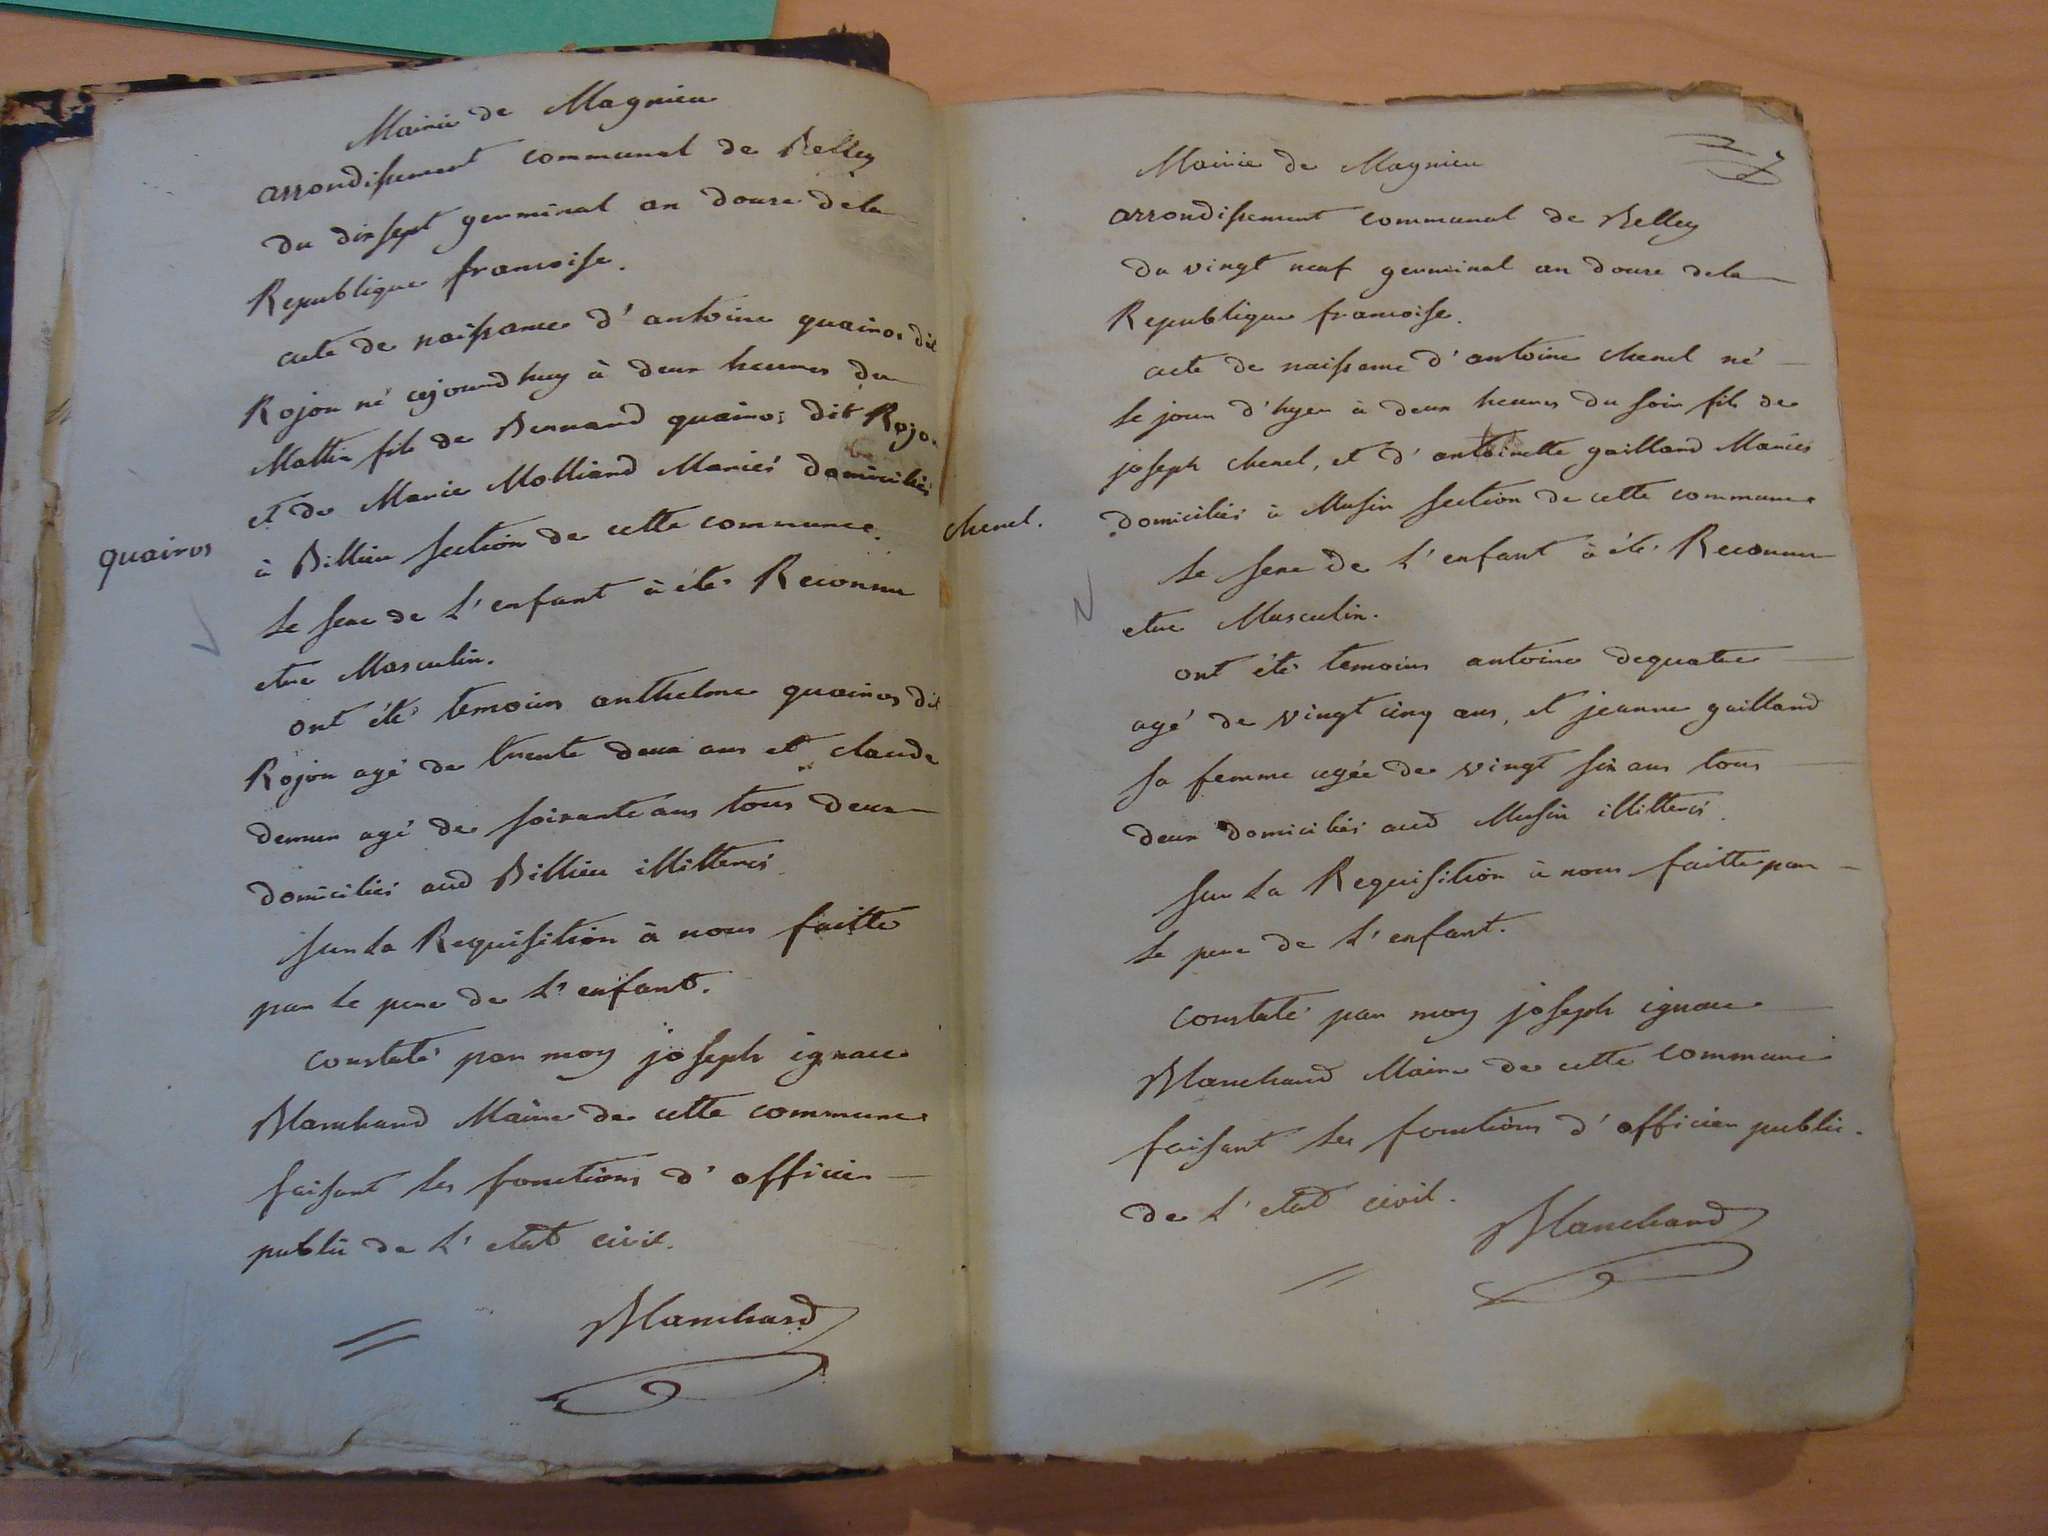 Mairie de Magnieu
arrondissement communal de Belley
du dixsept germinal an douze dela
Republique francoise.
acte de naissance d'antoine quairos dit
Rojon né cejourdhuy à deux heures du
Mattin fils de Bernard quairos dit Rojon
et de Marie Molliard Mariés domiciliés
à Billieu section de cette commune.
quairos
Le sexe de L'enfant à été Reconnu
etre Masculin.
ont été temoins anthelme quairos dit
Rojon agé de trente deux ans et claude
demun agé de soixante ans tous deux
domiciliés aud Billieu illitterés
sur La Requisition à nous faitte
par le pere de L'enfant.
constaté par moy joseph ignace
Marchand Maire de cette commune
faisant les fonctions d'officier
public de L'etat civil.
Marchand
7
Mairie de Magnieu
arrondissement communal de Belley
du vingt neuf germinal an douze dela
Republique francoise.
acte de naissance d'antoine chenel né
le jour d'hyer à deux heures du soir fils de
joseph chenel, et d'antoinette gailland Mariés
domiciliés à Musin section de cette commune
chenel.
Le sexe de L'enfant à été Reconnu
etre Masculin.
ont été temoins antoine dequatre
agé de vingt cinq ans, et jeanne gailland
sa femme agée de vingt six ans tous
deux domiciliés aud Musin illitterés
sur La Requisition à nous faitte par
Le pere de L'enfant.
constaté par moy joseph ignace
Marchand Maire de cette commune
faisant les fonctions d'officier public
de L'etat civil.
Marchand